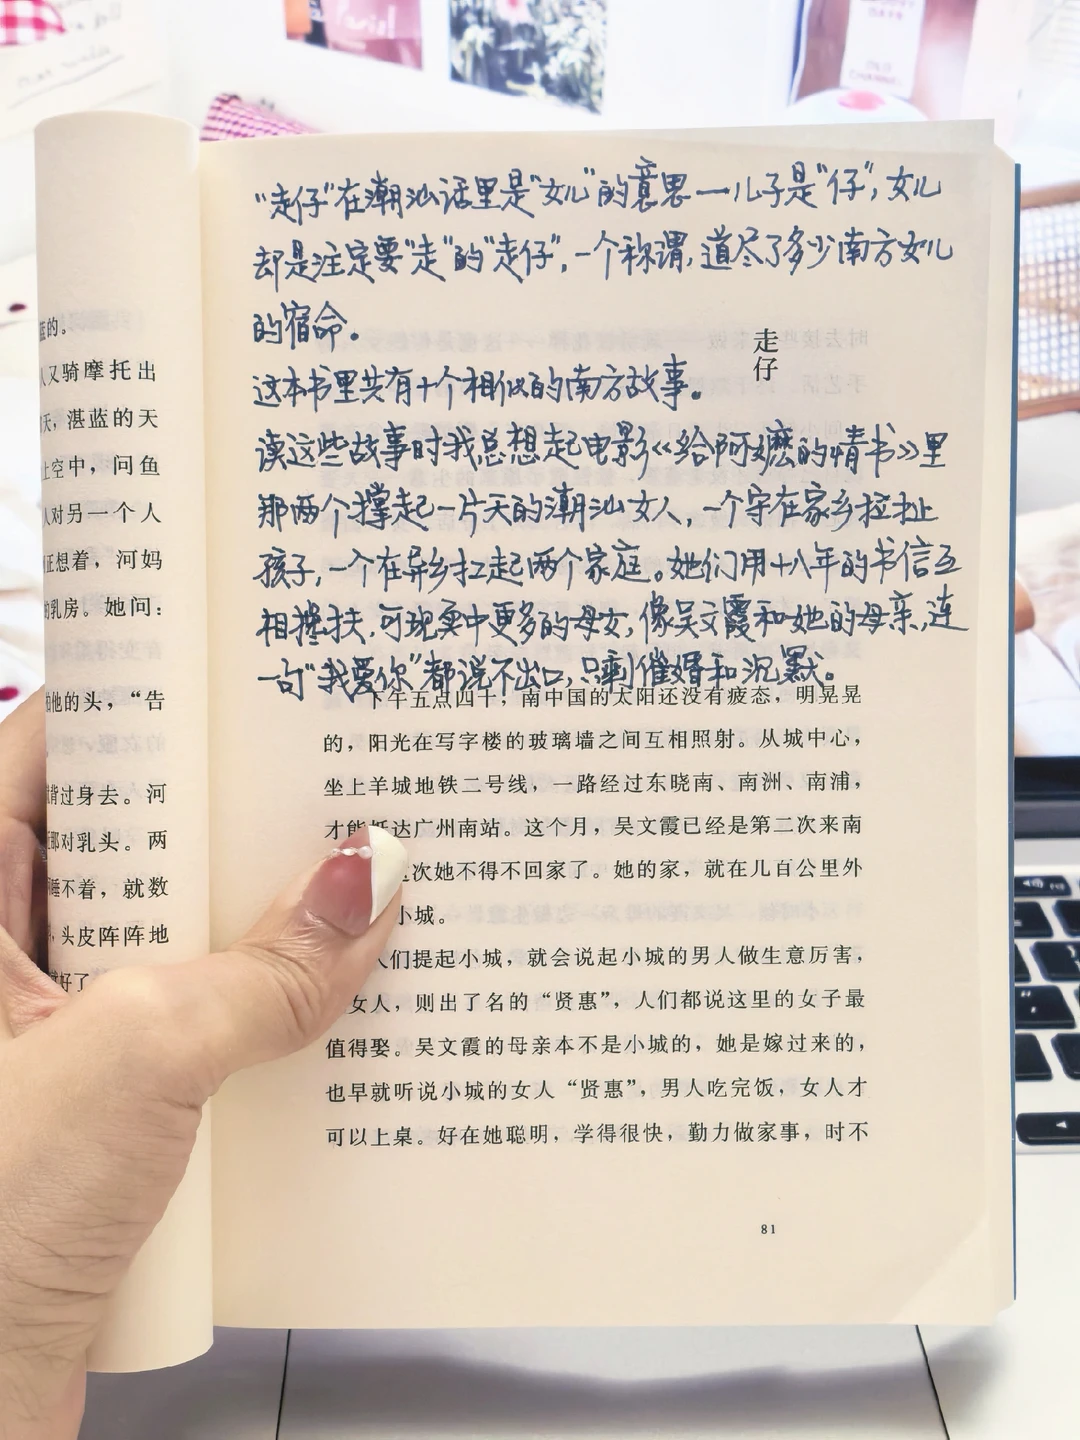 “走仔”在潮汕话里是“女儿”的意思—儿子是“仔”，女儿
却是注定要“走”的“走仔”，一个称谓，道尽了多少南方女儿
的宿命。
这本书里共有十个相似的南方故事。
读这些故事时我总想起电影《给阿嬷的情书》里
那两个撑起一片天的潮汕女人，一个守在家乡拉扯
孩子，一个在异乡扛起两个家庭。她们用十八年的书信互
相搀扶，可现实中更多的母女，像吴文霞和她的母亲，连
一句“我爱你”都说不出口，只剩催婚和沉默。
走仔
的。
又骑摩托出
天，湛蓝的天
空中，问鱼
对另一个人
想着，河妈
乳房。她问：
他的头，“告
背过身去。河
那对乳头。两
睡不着，就数
头皮阵阵地
好了
下午五点四十，南中国的太阳还没有疲态，明晃晃
的，阳光在写字楼的玻璃墙之间互相照射。从城中心，
坐上羊城地铁二号线，一路经过东晓南、南洲、南浦，
才能抵达广州南站。这个月，吴文霞已经是第二次来南
次她不得不回家了。她的家，就在几百公里外
小城。
人们提起小城，就会说起小城的男人做生意厉害，
女人，则出了名的“贤惠”，人们都说这里的女子最
值得娶。吴文霞的母亲本不是小城的，她是嫁过来的，
也早就听说小城的女人“贤惠”，男人吃完饭，女人才
可以上桌。好在她聪明，学得很快，勤力做家事，时不
81